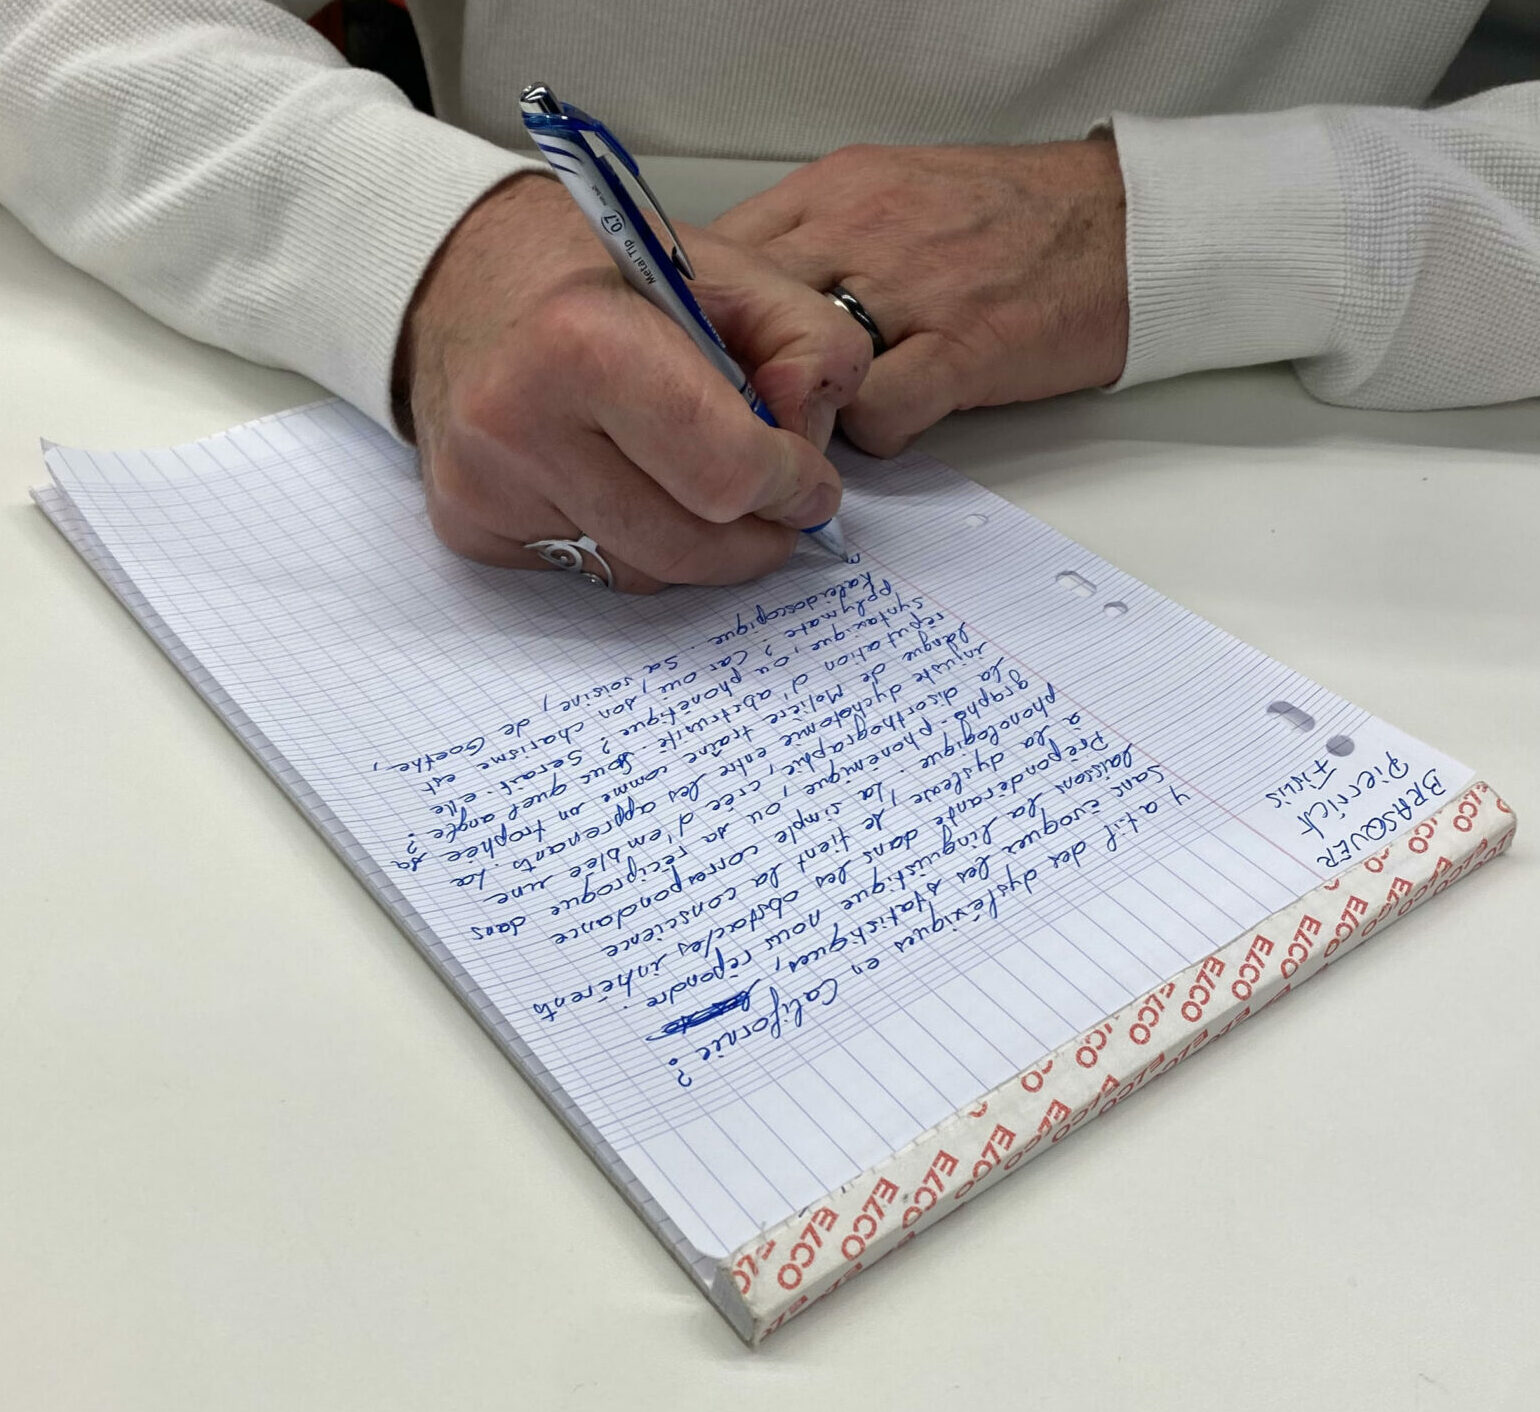 BRASQUER
Pierrick
Y a t il des dysléxiques en Californie ?
Sans évoquer les statistiques,
laissons la linguistique nous répondre.
Prépondérante dans les obstacles inhérents
à la dyslexie, se tient la conscience
phonologique. La simple correspondance
grapho-phonémique, ou sa réciproque dans
la disorthographie, crée d'emblée une
injuste dychotomie entre les apprenants. La
langue de Molière traîne comme un trophée sa
réputation d'abstrusité. Sous quel angle ?
syntaxique, ou phonétique ? Serait-elle
Polymate ? Car oui, son charisme est
Kaléidoscopique. Sa voisine, de Goethe,
Metal Tip 0.7
ELCO ELCO ELCO ELCO ELCO ELCO ELCO